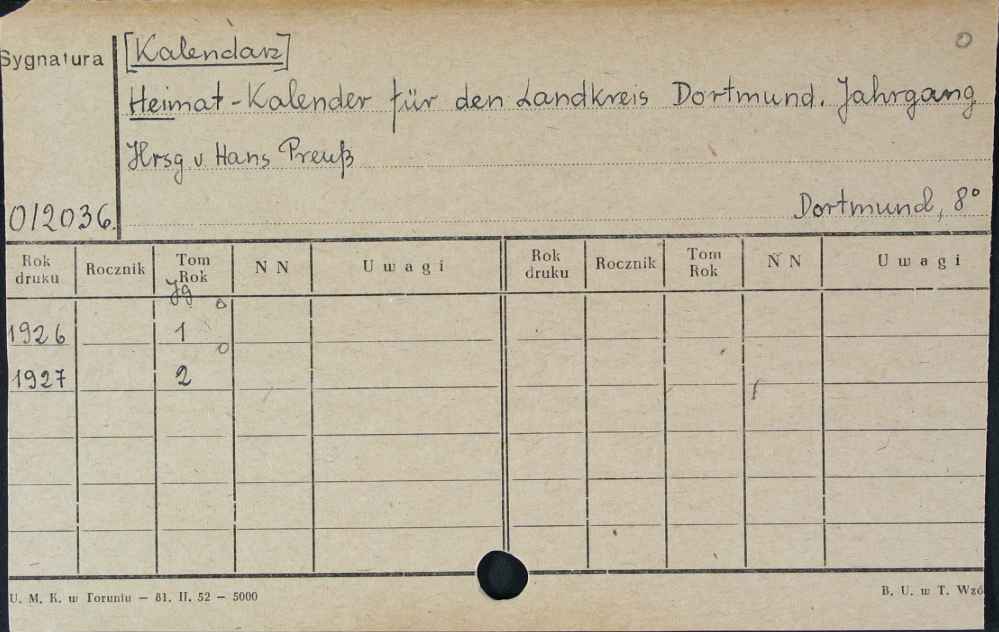 Sygnatura
[Kalendarz]
0
Heimat-Kalender für den Landkreis Dortmund. Jahrgang
Hrsg v. Hans Preuß
Dortmund, 8°
012036.
Rok druku Rocznik Tom Rok N N Uwagi Rok druku Rocznik Tom Rok N N Uwagi
Jg
1926 1 o
1927 2 o
U. M. K. w Toruniu — 81. II. 52 — 5000
B. U. w T. Wzó